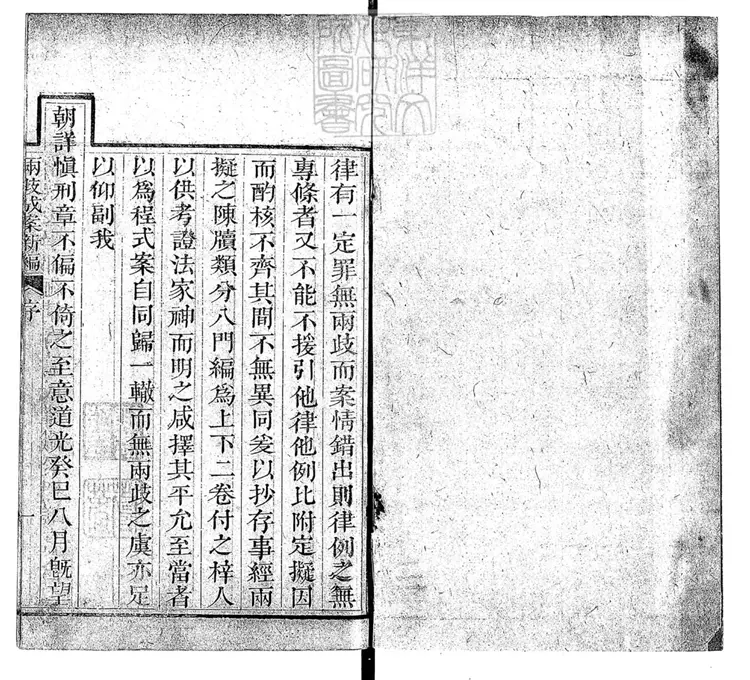 律有一定罪無兩歧而案情錯出則律例之無
專條者又不能不援引他律他例比附定擬因
而酌核不齊其間不無異同爰以抄存事經兩
擬之陳牘類分八門編爲上下二卷付之梓人
以供考證法家神而明之咸擇其平允至當者
以爲程式案自同歸一轍而無兩歧之虞亦足
以仰副我
朝詳慎刑章不偏不倚之至意道光癸巳八月旣望
兩歧成案新編
序
一